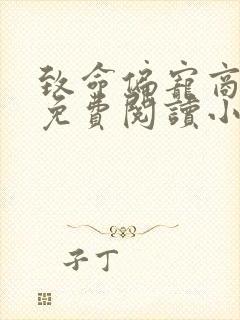 致命偏寵商
免費閱讀小
子丁